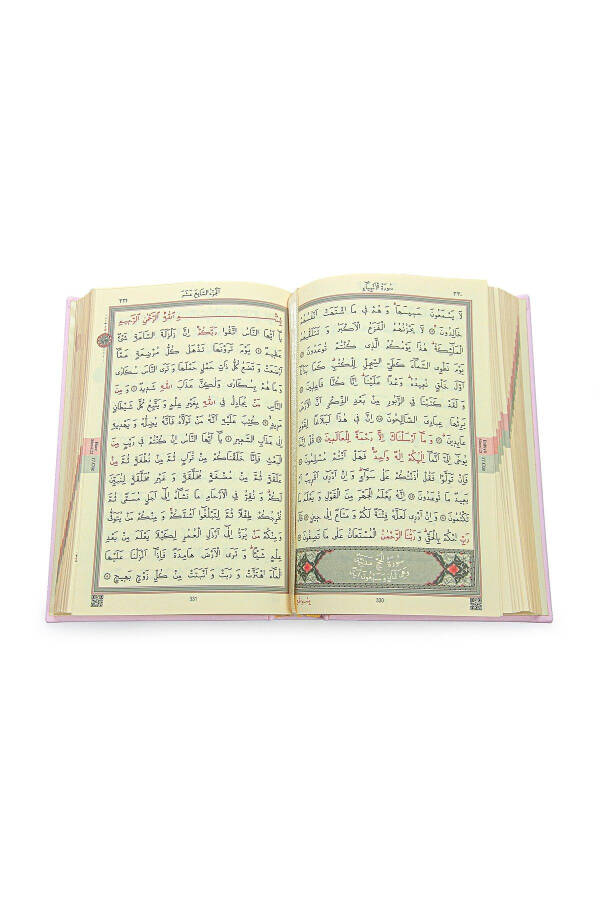 سُورَةُ الْأَنْبِيَاءِ
٣٣٠
لَا يَسْمَعُونَ حَسِيسَهَا وَهُمْ فِي مَا اشْتَهَتْ أَنْفُسُهُمْ
خَالِدُونَ ۝ لَا يَحْزُنُهُمُ الْفَزَعُ الْأَكْبَرُ وَتَتَلَقَّاهُمُ
الْمَلٰٓئِكَةُ هٰذَا يَوْمُكُمُ الَّذِي كُنْتُمْ تُوعَدُونَ ۝
يَوْمَ نَطْوِي السَّمَاءَ كَطَيِّ السِّجِلِّ لِلْكُتُبِ كَمَا بَدَأْنَا
أَوَّلَ خَلْقٍ نُعِيدُهُ وَعْدًا عَلَيْنَا إِنَّا كُنَّا فَاعِلِينَ ۝
وَلَقَدْ كَتَبْنَا فِي الزَّبُورِ مِنْ بَعْدِ الذِّكْرِ أَنَّ الْأَرْضَ
يَرِثُهَا عِبَادِيَ الصَّالِحُونَ ۝ إِنَّ فِي هٰذَا لَبَلَاغًا لِقَوْمٍ
عَابِدِينَ ۝ وَمَا أَرْسَلْنَاكَ إِلَّا رَحْمَةً لِلْعَالَمِينَ ۝ قُلْ إِنَّمَا
يُوحٰى إِلَيَّ أَنَّمَا إِلٰهُكُمْ إِلٰهٌ وَاحِدٌ فَهَلْ أَنْتُمْ مُسْلِمُونَ ۝
فَإِنْ تَوَلَّوْا فَقُلْ اٰذَنْتُكُمْ عَلٰى سَوَاءٍ وَإِنْ أَدْرِي أَقَرِيبٌ أَمْ
بَعِيدٌ مَا تُوعَدُونَ ۝ إِنَّهُ يَعْلَمُ الْجَهْرَ مِنَ الْقَوْلِ وَيَعْلَمُ مَا
تَكْتُمُونَ ۝ وَإِنْ أَدْرِي لَعَلَّهُ فِتْنَةٌ لَكُمْ وَمَتَاعٌ إِلٰى حِينٍ ۝ قَالَ
رَبِّ احْكُمْ بِالْحَقِّ وَرَبُّنَا الرَّحْمٰنُ الْمُسْتَعَانُ عَلٰى مَا تَصِفُونَ ۝
سُورَةُ الْحَجِّ
330
الْجُزْءُ السَّابِعَ عَشَرَ
٣٣١
بِسْمِ اللّٰهِ الرَّحْمٰنِ الرَّحِيمِ
يَا أَيُّهَا النَّاسُ اتَّقُوا رَبَّكُمْ إِنَّ زَلْزَلَةَ السَّاعَةِ شَيْءٌ
عَظِيمٌ ۝ يَوْمَ تَرَوْنَهَا تَذْهَلُ كُلُّ مُرْضِعَةٍ عَمَّا
أَرْضَعَتْ وَتَضَعُ كُلُّ ذَاتِ حَمْلٍ حَمْلَهَا وَتَرَى النَّاسَ سُكَارٰى
وَمَا هُمْ بِسُكَارٰى وَلٰكِنَّ عَذَابَ اللّٰهِ شَدِيدٌ ۝ وَمِنَ
النَّاسِ مَنْ يُجَادِلُ فِي اللّٰهِ بِغَيْرِ عِلْمٍ وَيَتَّبِعُ كُلَّ شَيْطَانٍ
مَرِيدٍ ۝ كُتِبَ عَلَيْهِ أَنَّهُ مَنْ تَوَلَّاهُ فَأَنَّهُ يُضِلُّهُ وَيَهْدِيهِ
إِلٰى عَذَابِ السَّعِيرِ ۝ يَا أَيُّهَا النَّاسُ إِنْ كُنْتُمْ فِي رَيْبٍ مِنَ
الْبَعْثِ فَإِنَّا خَلَقْنَاكُمْ مِنْ تُرَابٍ ثُمَّ مِنْ نُطْفَةٍ ثُمَّ مِنْ
عَلَقَةٍ ثُمَّ مِنْ مُضْغَةٍ مُخَلَّقَةٍ وَغَيْرِ مُخَلَّقَةٍ لِنُبَيِّنَ
لَكُمْ وَنُقِرُّ فِي الْأَرْحَامِ مَا نَشَاءُ إِلٰى أَجَلٍ مُسَمًّى ثُمَّ
نُخْرِجُكُمْ طِفْلًا ثُمَّ لِتَبْلُغُوا أَشُدَّكُمْ وَمِنْكُمْ مَنْ يُتَوَفّٰى
وَمِنْكُمْ مَنْ يُرَدُّ إِلٰى أَرْذَلِ الْعُمُرِ لِكَيْلَا يَعْلَمَ مِنْ بَعْدِ
عِلْمٍ شَيْئًا وَتَرَى الْأَرْضَ هَامِدَةً فَإِذَا أَنْزَلْنَا عَلَيْهَا
الْمَاءَ اهْتَزَّتْ وَرَبَتْ وَأَنْبَتَتْ مِنْ كُلِّ زَوْجٍ بَهِيجٍ ۝
331